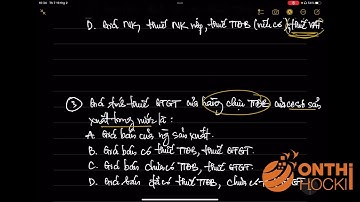 D. Giá NK, thuế NK nếu, thuế TTĐB (nếu có), thuế VAT
③ Giá tính thuế GTGT của hàng chịu TTĐB của cssx sản
xuất trong nước là :
A. Giá bán của ng sản xuất.
B. Giá bán có thuế TTĐB, thuế GTGT.
C. Giá bán chưa có TTĐB, thuế GTGT.
D. Giá bán đã có thuế TTĐB, chưa có GT
ONTHI
HOCKI